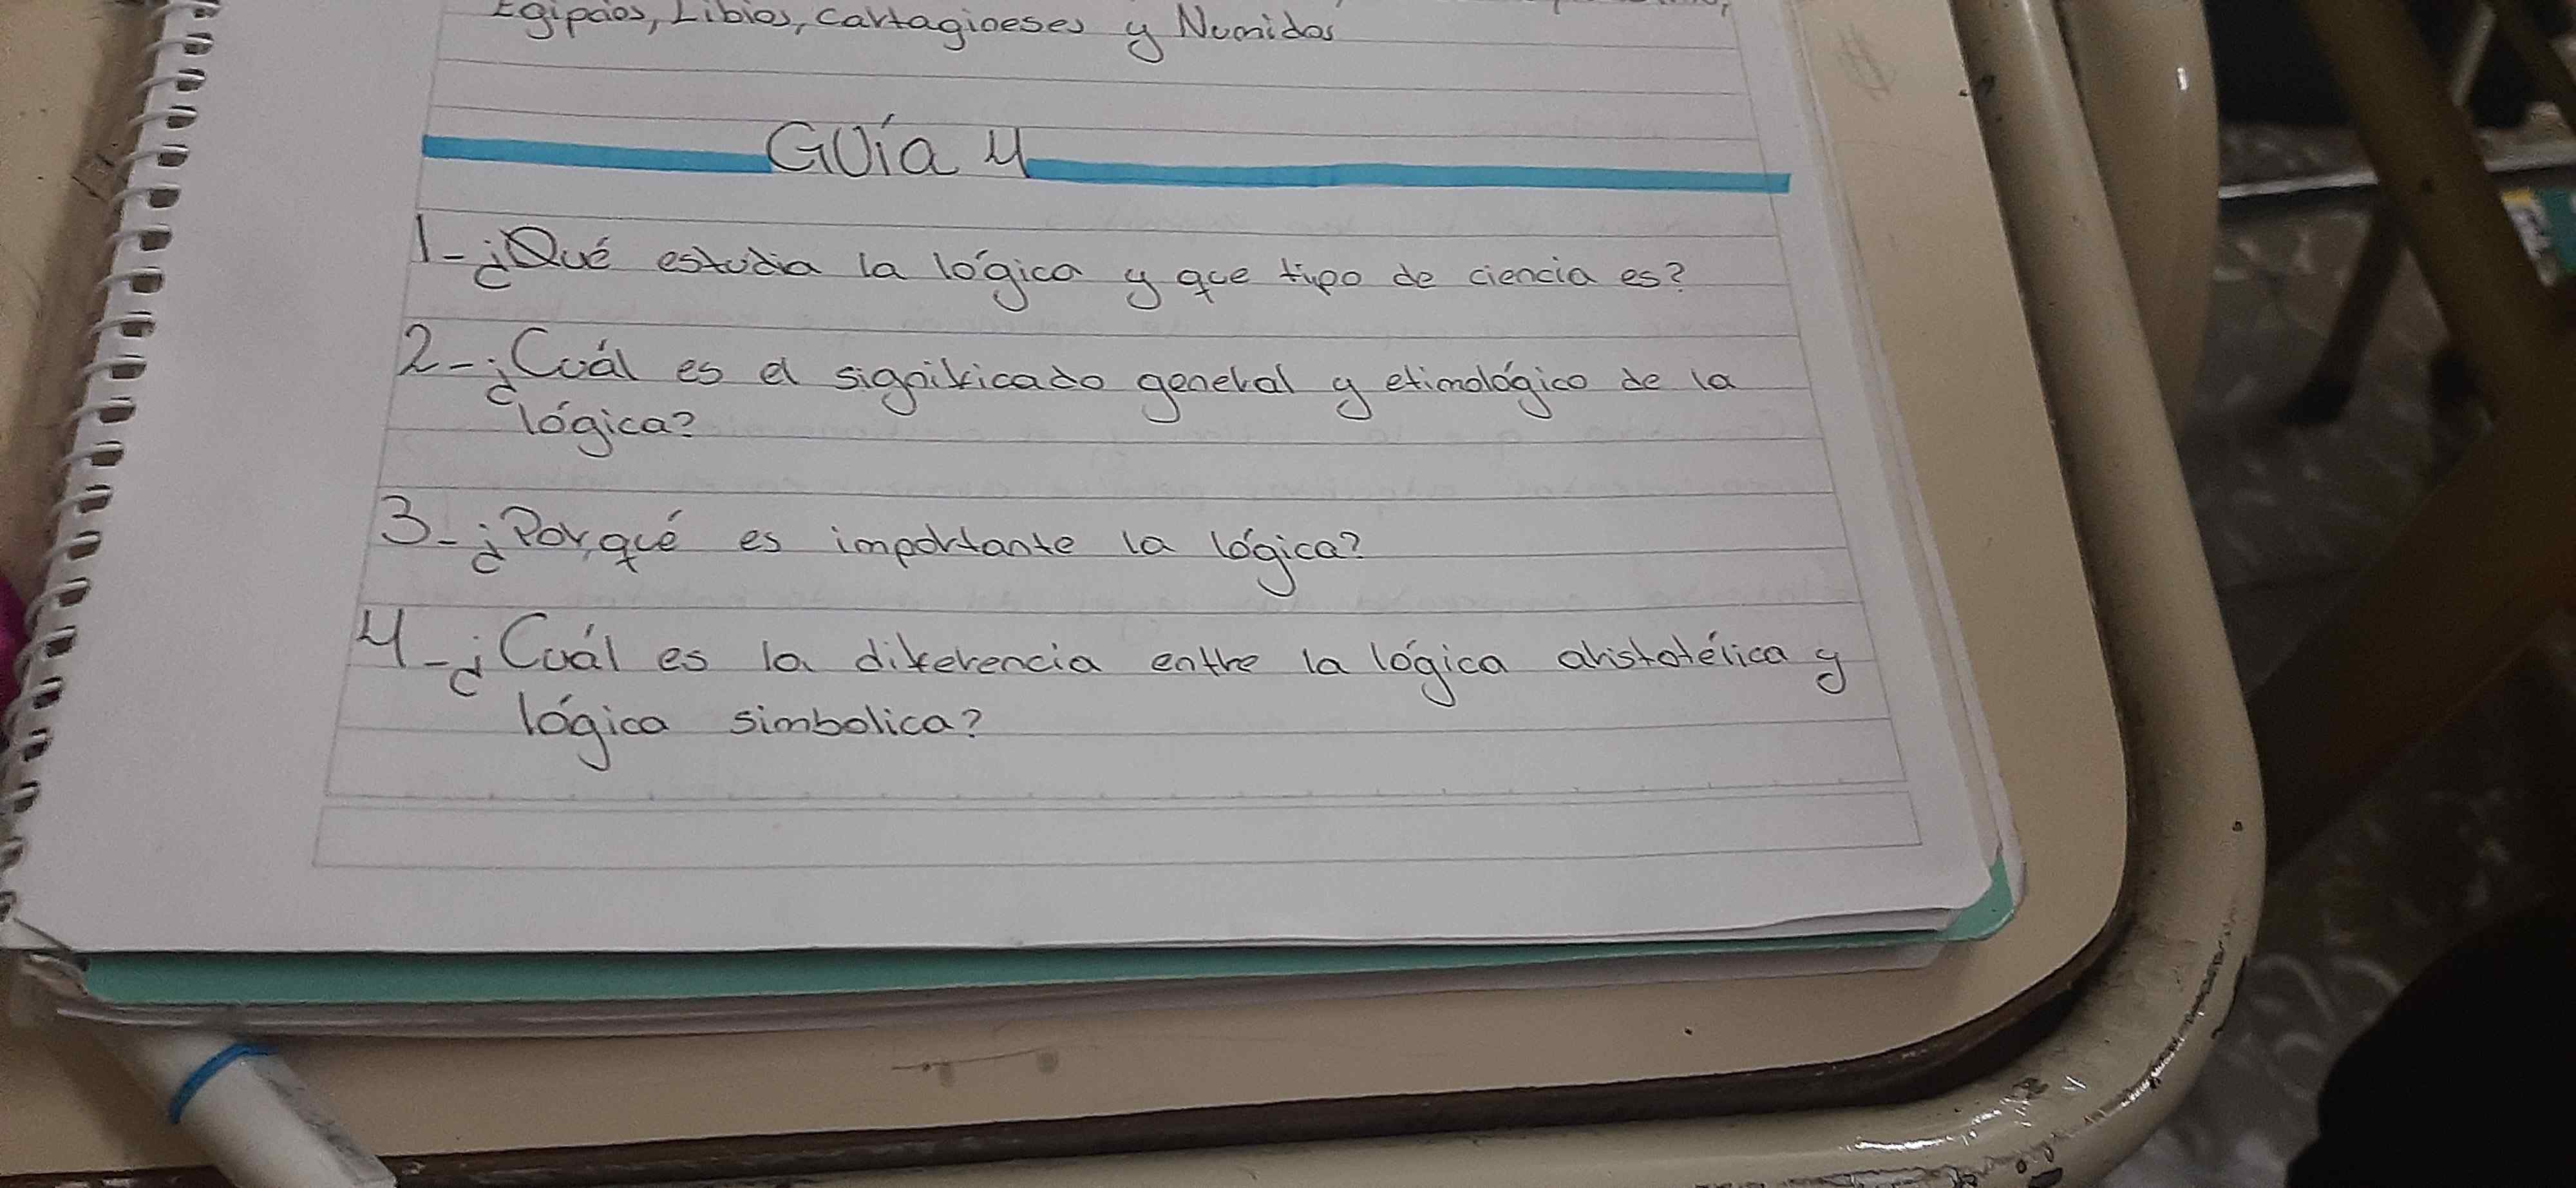 Egipcios, Libios, cartagineses y Numidas
GUía 4
1-¿Qué estudia la lógica y que tipo de ciencia es?
2-¿Cuál es el significado general y etimológico de la
lógica?
3-¿Porqué es importante la lógica?
4-¿Cuál es la diferencia entre la lógica aristotélica y
lógica simbolica?